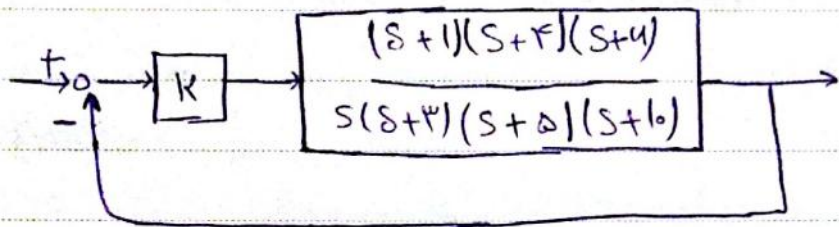 +
-
K
(S+1)(S+۴)(S+۷)
S(S+۳)(S+۵)(S+۱۰)